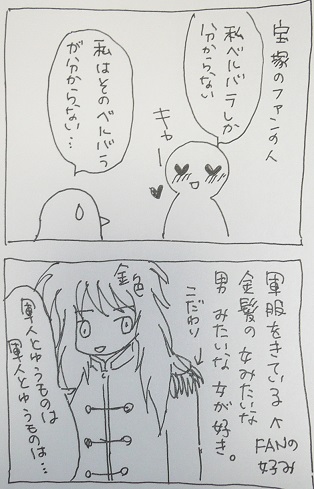 宝塚のファンの人
私ベルバラしか
分からない
キャー
私はそのベルバラ
が分からない…
軍服をきている
金髪の女みたいな
男みたいな女が好き。
↖FANの
好み
こだわり
金色
軍人とゆうものは
軍人とゆうものは…